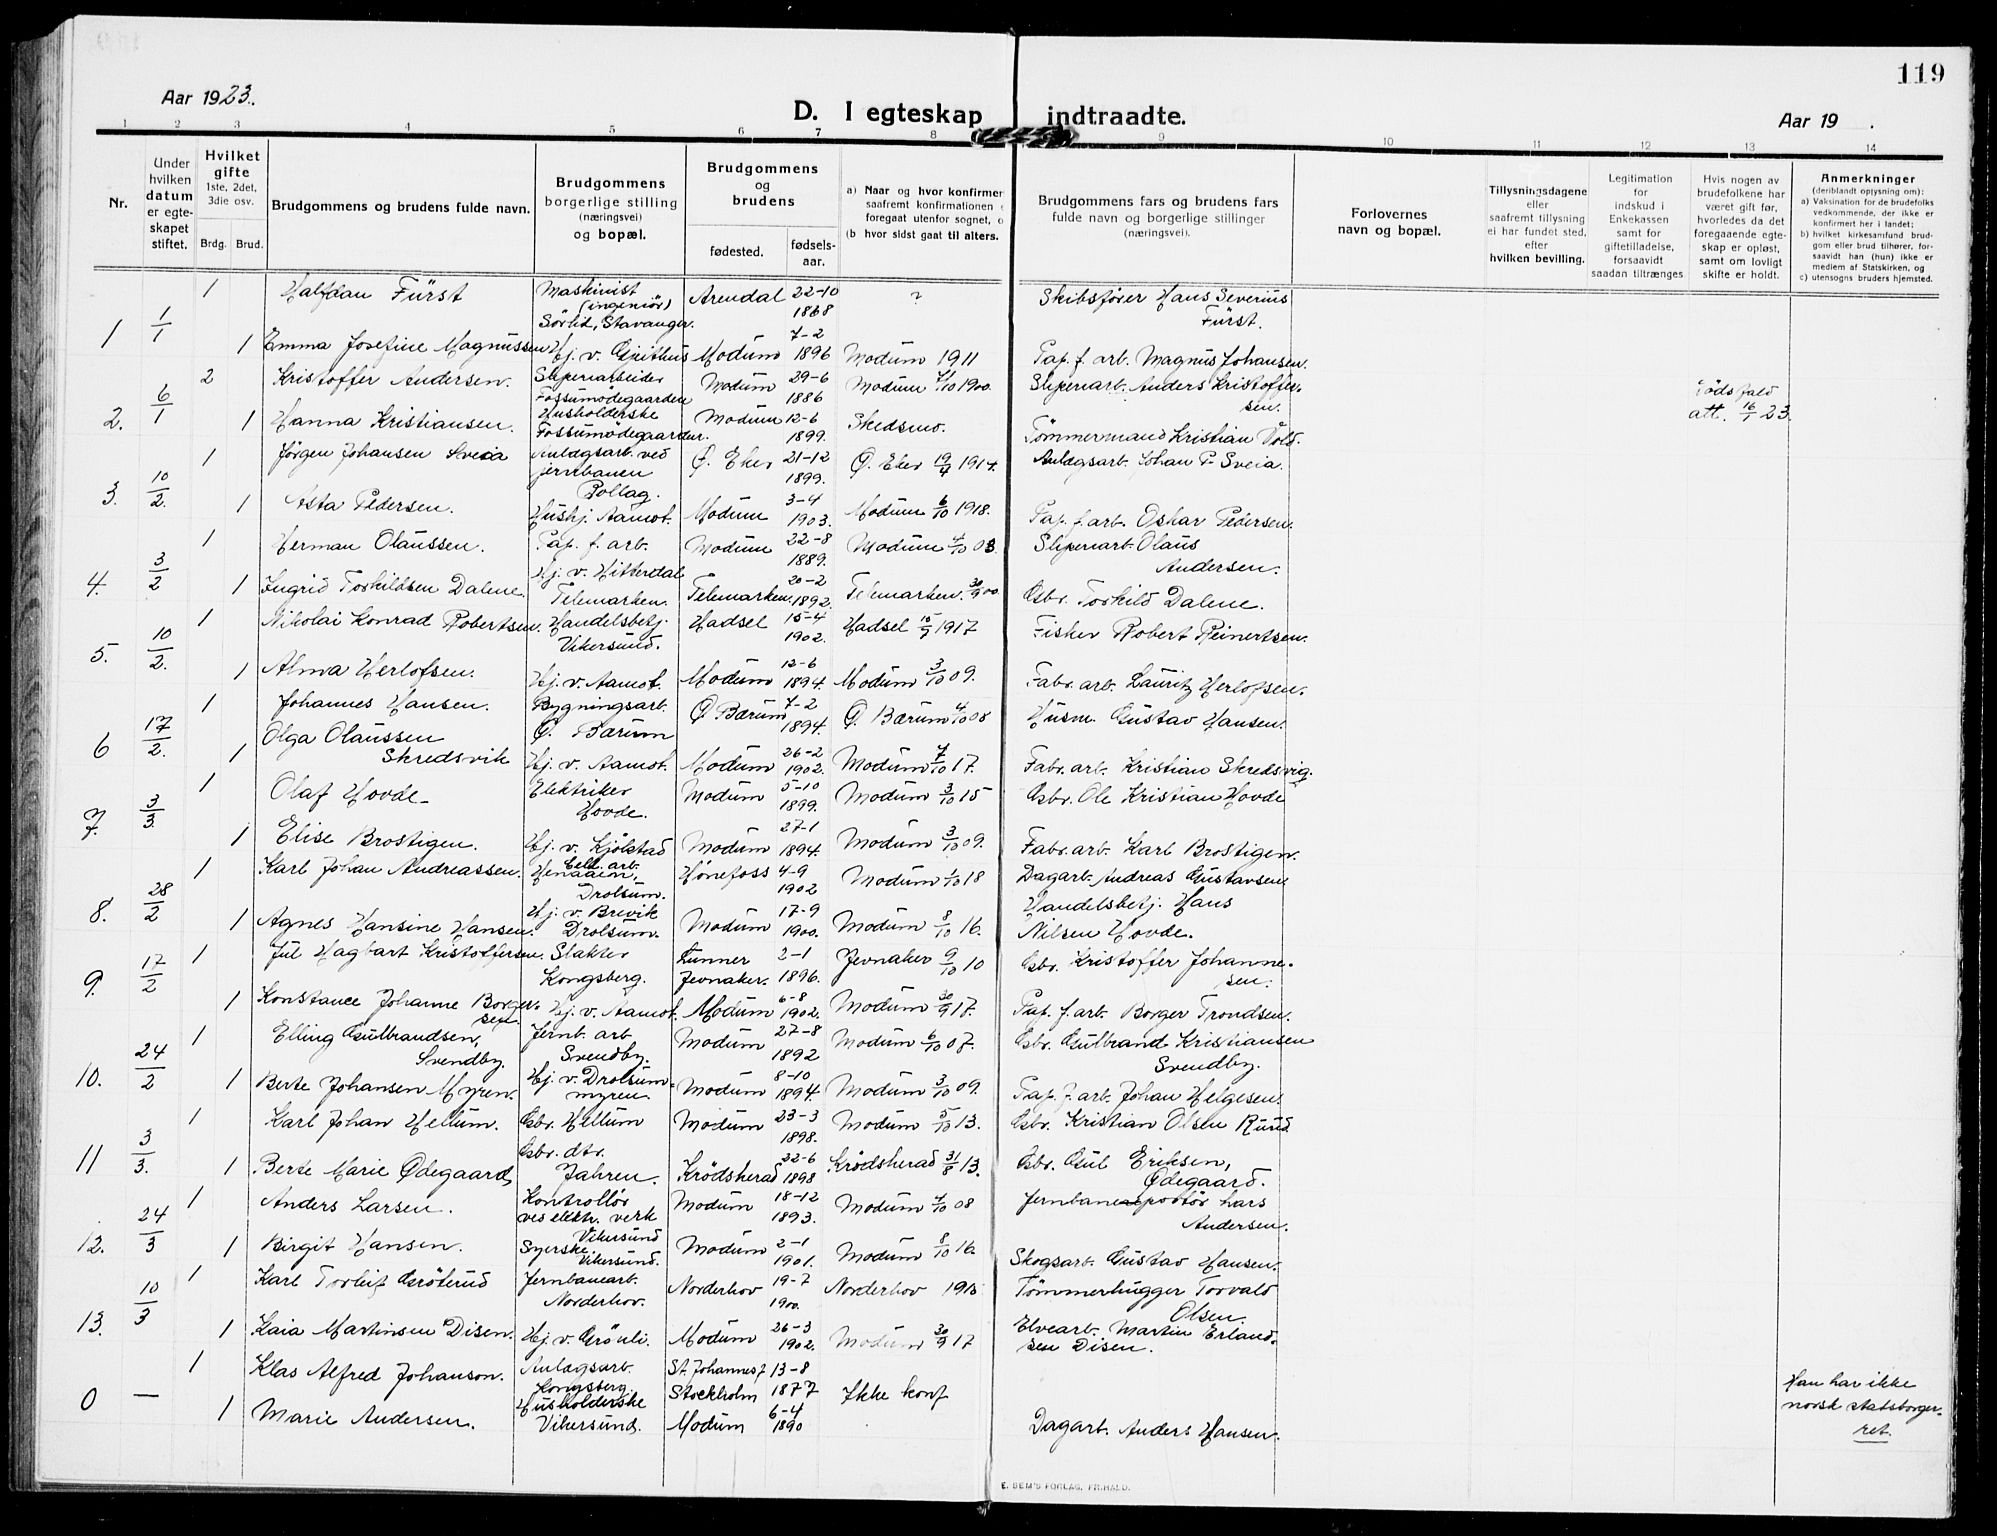 119
Aar 1923.
D. I egteskap indtraadte.
Aar 19 .
1 2 3 4 5 6 7 8 9 10 11 12 13 14
Nr.
Under hvilken datum er egteskapet stiftet.
Hvilket gifte 1ste, 2det, 3die osv.
Brdg. Brud.
Brudgommens og brudens fulde navn.
Brudgommens borgerlige stilling (næringsvei) og bopæl.
Brudgommens og brudens
fødested. fødsels-aar.
a) Naar og hvor konfirmer
saafremt konfirmationen
foregaat utenfor sognet, o
(b hvor sidst gaat til alters.
Brudgommens fars og brudens fars
fulde navn og borgerlige stillinger
(næringsvei).
Forlovernes
navn og bopæl.
Tillysningsdagene
eller
saafremt tillysning
ei har fundet sted,
efter
hvilken bevilling.
Legitimation
for
indskud i
Enkekassen
samt for
giftetilladelse,
forsaavidt
saadan tiltrænges
Hvis nogen av
brudefolkene har
været gift før,
hvorledes da det
foregaaende egte-
skap er opløst,
samt om lovligt
skifte er holdt.
Anmerkninger
(deriblandt oplysning om):
a) Vaksination for de brudefolks
vedkommende, der ikke er
konfirmert her i landet;
b) hvilket kirkesamfund brud-
gom eller brud tilhører, for-
saavidt han (hun) ikke er
medlem af Statskirken, og
c) utensogns bruders hjemsted.
1 1/1 1 Halfdan Fürst Maskinist (ingeniør) Sörlid, Stavanger. Arendal 22-10 1868 ? Skibsfører Hans Severius Fürst.
1 Emma Josefine Magnussen Hj. v. Geithus Modum 7-2 1896 Modum 1911 Pap. f. arb. Magnus Johansen.
2. 6/1 2 Kristoffer Andersen. Sliperiarbeider Fossumödegaarden Modum 29-6 1886 Modum 7/10 1900. Sliperiarb. Anders Kristoffersen. Dödsfald att. 16/1 23.
1 Hanna Kristiansen. Husholderske Fossumödegaarden. Modum 12-6 1899. Skedsmo. Tömmermand Kristian Vold.
3. 10/2. 1 Jørgen Johansen Sveia Anlægsarb. ved jernbanen Rollag. Ø. Eker 21-12 1899. Ø. Eker 19/4 1914. Anlægsarb. Johan P. Sveia.
1 Asta Pedersen. Hushj. Aamot. Modum 3-4 1903. Modum 6/10 1918. Pap. f. arb. Oskar Pedersen.
4. 3/2 1 Herman Olaussen. Pap. f. arb. Modum 22-8 1889. Modum 4/10 03. Sliperiarb. Olaus Andersen.
1 Ingrid Torkildsen Dalene. Hj. v. Hitterdal Telemarken. Telemarken. 20-2 1892. Telemarken. 30/9 00. Gbr. Torkild Dalene.
5. 10/2. 1 Nikolai Konrad Robertsen. Handelsbetj. Vikersund. Hadsel 15-4 1902. Hadsel 16/9 1917 Fisker Robert Reinertsen.
1 Alma Herlofsen. Hj. v. Aamot. Modum 12-6 1894. Modum 3/10 09. Fabr. arb. Lauritz Herlofsen.
6 17/2. 1 Johannes Hansen. Bygningsarb. Ø. Bærum Ø. Bærum 7-2 1894. Ø. Bærum 4/10 08 Husm. Gustav Hansen.
1 Olga Olaussen Skredsvik Hj. v. Aamot. Modum 26-2 1902. Modum 7/10 17. Fabr. arb. Kristian Skredsvig.
7. 3/3. 1 Olaf Hovde. Elektriker Hovde. Modum 5-10 1899. Modum 3/10 15 Gbr. Ole Kristian Hovde
1 Elise Brostigen. Hj. v. Kjölstad Modum 27-1 1894. Modum 3/10 09. Fabr. arb. Karl Brostigen.
8. 28/2 1 Karl Johan Andreassen. Cell. arb. Henaaen, Drolsum. Hönefoss 4-9 1902 Modum 1/10 18 Dagarb. Andreas Gustavsen.
1 Agnes Hansine Hansen. Hj. v. Brevik Drolsum. Modum 17-9 1900. Modum 8/10 16. Handelsbetj. Hans Nilsen Hovde.
9. 17/2 1 Jul Hagbart Kristoffersen. Slakter Kongsberg. Lunner Jevnaker. 2-1 1896. Jevnaker 9/10 10 Gbr. Kristoffer Johannesen.
1 Konstance Johanne Borgersen. Hj. v. Aamot. Modum 6-8 1902. Modum 30/9 17. Pap. f. arb. Borger Trondsen.
10. 24/2 1 Elling Gulbrandsen, Svendby. Jernb. arb Svendby. Modum 27-8 1892 Modum 6/10 07. Gbr. Gulbrand Kristiansen Svendby.
1 Berte Johansen Myren. Hj. v. Drolsummyren. Modum 8-10 1894. Modum 3/10 09. Pap. f. arb. Johan Helgesen.
11 3/3. 1 Karl Johan Hellum. Gbr. Hellum Modum 23-3 1898. Modum 5/10 13. Gbr. Kristian Olsen Ruud.
1 Berte Marie Ødegaard, Gbr. dtr. Jahren. Krödsherad 22-6 1898 Krödsherad 31/8 13. Gbr. Gul Eriksen, Ødegaard.
12. 24/3 1 Anders Larsen. Kontrollör ved elektr. verk Vikersund Modum 18-12 1893. Modum 4/10 08 Jernbaneportör Lars Andersen.
1 Birgit Hansen. Syerske Vikersund. Modum 2-1 1901. Modum 8/10 16. Skogsarb. Gustav Hansen.
13. 10/3 1 Karl Torleif Gröterud Jernbanearb. Norderhov. Norderhov 19-7 1900. Norderhov 1915 Tömmerhugger Torvald Olsen.
1 Kaia Martinsen Disen. Hj. v. Grönli. Modum 26-3 1902. Modum 30/9 17 Elvearb. Martin Erlandsen Disen.
0 — 1 Klas Alfred Johanson. Anlægsarb. Kongsberg. St. Johannes f Stockholm 13-8 1877 Ikke konf Han har ikke norsk statsborgerret.
1 Marie Andersen. Husholderske Vikersund. Modum 6-4 1890 Dagarb. Anders Hansen.
E. SEM'S FORLAG, FR.HALD.